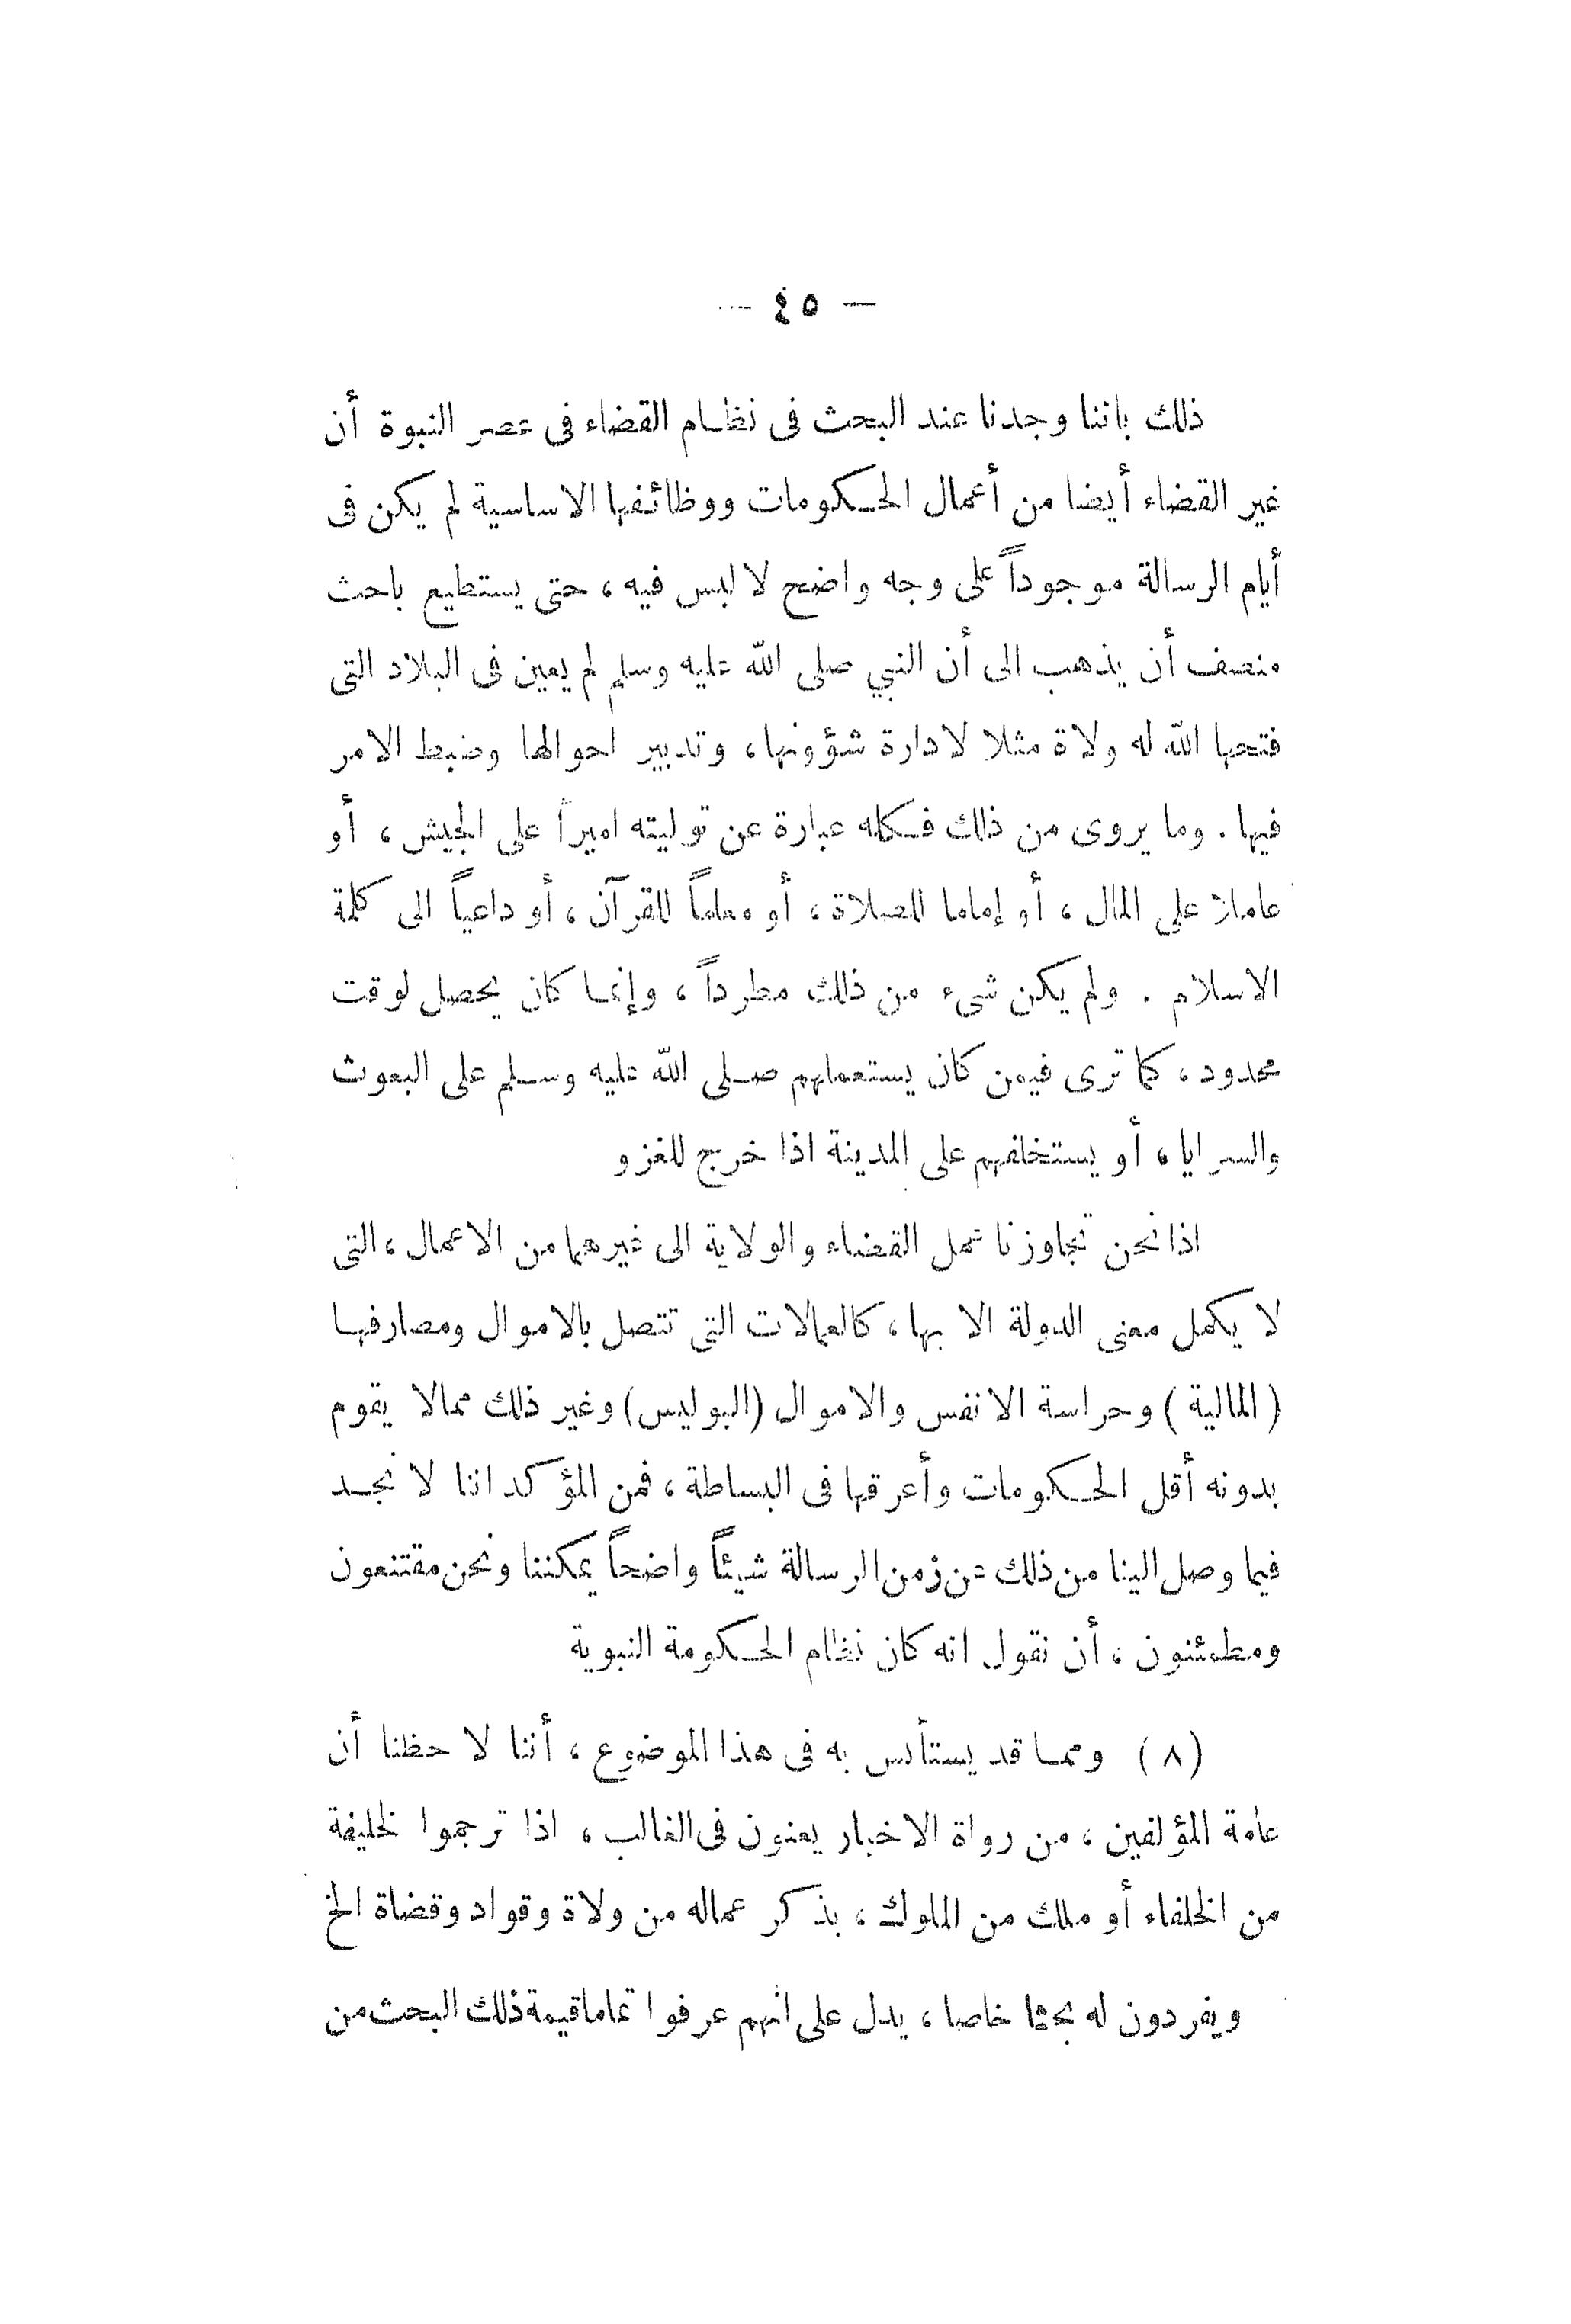 — ٤٥ —
ذلك باننا وجدنا عند البحث فى نظام القضاء فى عصر النبوة أن
غير القضاء أيضا من أعمال الحكومات ووظائفها الاساسية لم يكن فى
أيام الرسالة موجوداً على وجه واضح لا لبس فيه ، حتى يستطيع باحث
منصف أن يذهب الى أن النبي صلى الله عليه وسلم لم يعين فى البلاد التى
فتحها الله له ولاة مثلا لادارة شؤونها ، وتدبير احوالها وضبط الامر
فيها . وما يروى من ذلك فكله عبارة عن توليته اميراً على الجيش ، أو
عاملا على المال ، أو إماما للصلاة ، أو معلماً للقرآن ، أو داعياً الى كلمة
الاسلام . ولم يكن شىء من ذلك مطرداً ، وإنما كان يحصل لوقت
محدود ، كما ترى فيمن كان يستعملهم صلى الله عليه وسلم على البعوث
والسرايا ، أو يستخلفهم على المدينة اذا خرج للغزو
اذا نحن تجاوزنا عمل القضاء والولاية الى غيرهما من الاعمال ، التى
لا يكمل معنى الدولة الا بها ، كالعمالات التى تتصل بالاموال ومصارفها
( المالية ) وحراسة الانفس والاموال (البوليس) وغير ذلك ممالا يقوم
بدونه أقل الحكومات وأعرقها فى البساطة ، فمن المؤكد اننا لا نجد
فيما وصل الينا من ذلك عن زمن الرسالة شيئاً واضحاً يمكننا ونحن مقتنعون
ومطمئنون ، أن نقول انه كان نظام الحكومة النبوية
(٨) ومما قد يستأنس به فى هذا الموضوع ، أننا لاحظنا أن
عامة المؤلفين ، من رواة الاخبار يعنون فى الغالب ، اذا ترجموا لخليفة
من الخلفاء أو ملك من الملوك ، بذكر عماله من ولاة وقواد وقضاة الخ
ويفردون له بحثا خاصا ، يدل على انهم عرفوا تماما قيمة ذلك البحث من